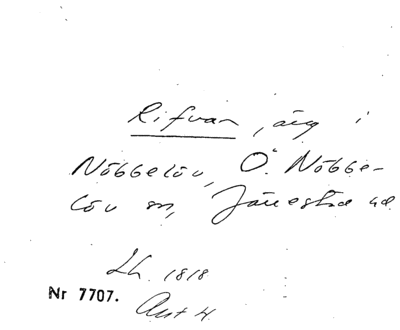 Rifvan, äng i
Nöbbelöv, Ö. Nöbbe-
löv sn, Järrestad hd
Lh. 1818
Nr 7707.
Akt 4